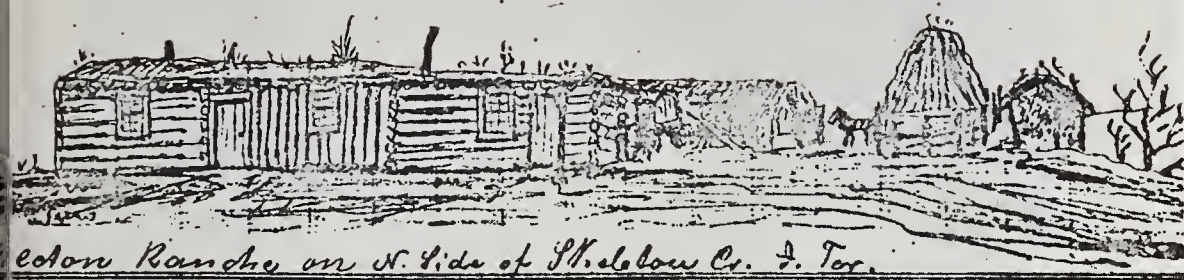 eston Ranche on N. Side of Skeleton Cr. I. Ter.